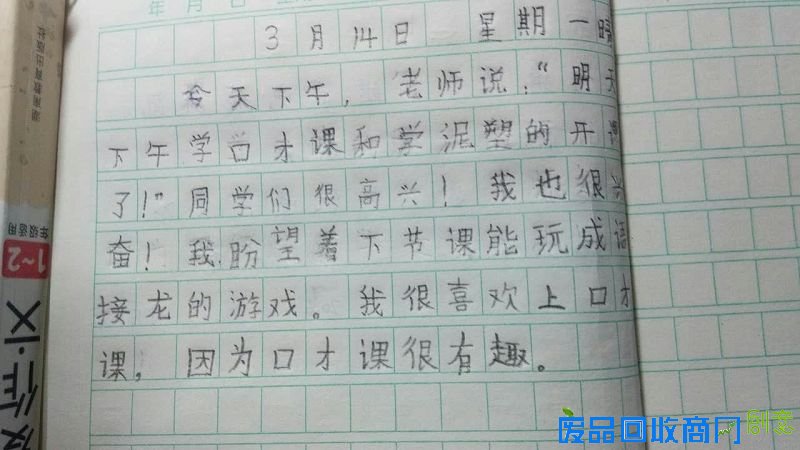 年 月 日
3月14日 星期一晴
今天下午，老师说：“明天
下午学口才课和学泥塑的开课
了！”同学们很高兴！我也很兴
奋！我盼望着下节课能玩成语
接龙的游戏。我很喜欢上口才
课，因为口才课很有趣。
湖南教育出版社
年级适用
1~2
作文
废品回收商网
创艺